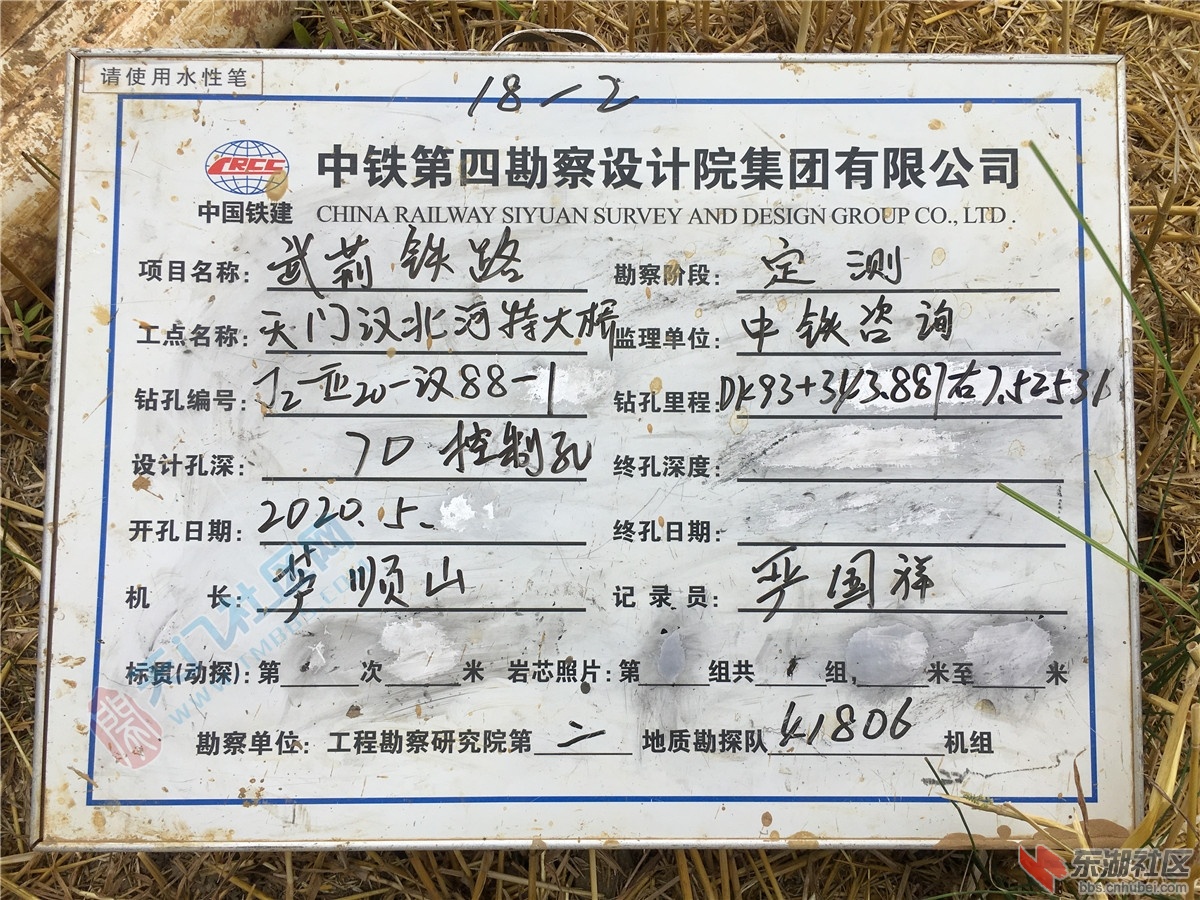 请使用水性笔
18-2
CRCC
中国铁建
中铁第四勘察设计院集团有限公司
CHINA RAILWAY SIYUAN SURVEY AND DESIGN GROUP CO., LTD .
项目名称: 武荆铁路 勘察阶段: 定测
工点名称: 天门汉北河特大桥 监理单位: 中铁咨询
钻孔编号: J2-亚20-汉88-1 钻孔里程: DK93+343.887右7.52531
设计孔深: 70 控制孔 终孔深度:
开孔日期: 2020.5. 终孔日期:
机 长: 顺山 记录员: 严国祥
标贯(动探): 第 次 米 岩芯照片: 第 组共 组, 米至 米
勘察单位: 工程勘察研究院第 二 地质勘探队 41806 机组
天门社区网
东湖社区
bbs.cnhubei.com